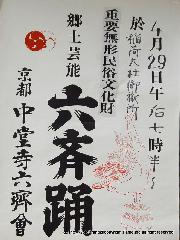 4月29日午后七時半〜
於稲荷大社御旅所
重要無形民俗文化財
郷土芸能
六斉踊
京都
中堂寺六齊會